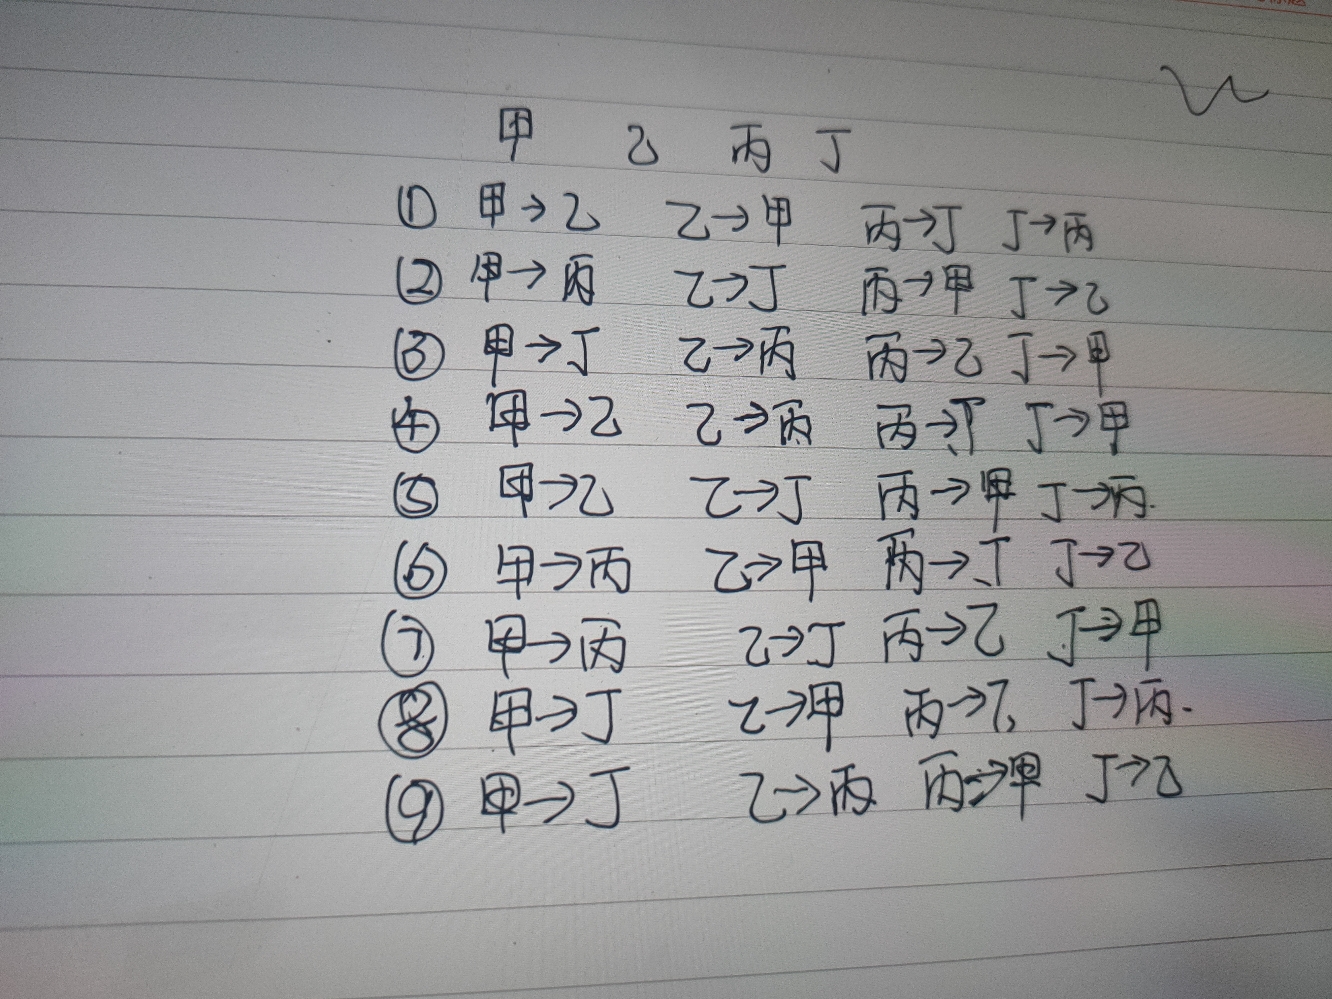 甲 乙 丙 丁
① 甲→乙 乙→甲 丙→丁 丁→丙
② 甲→丙 乙→丁 丙→甲 丁→乙
③ 甲→丁 乙→丙 丙→乙 丁→甲
④ 甲→乙 乙→丙 丙→丁 丁→甲
⑤ 甲→乙 乙→丁 丙→甲 丁→丙.
⑥ 甲→丙 乙→甲 丙→丁 丁→乙
⑦ 甲→丙 乙→丁 丙→乙 丁→甲
⑧ 甲→丁 乙→甲 丙→乙 丁→丙.
⑨ 甲→丁 乙→丙 丙→甲 丁→乙